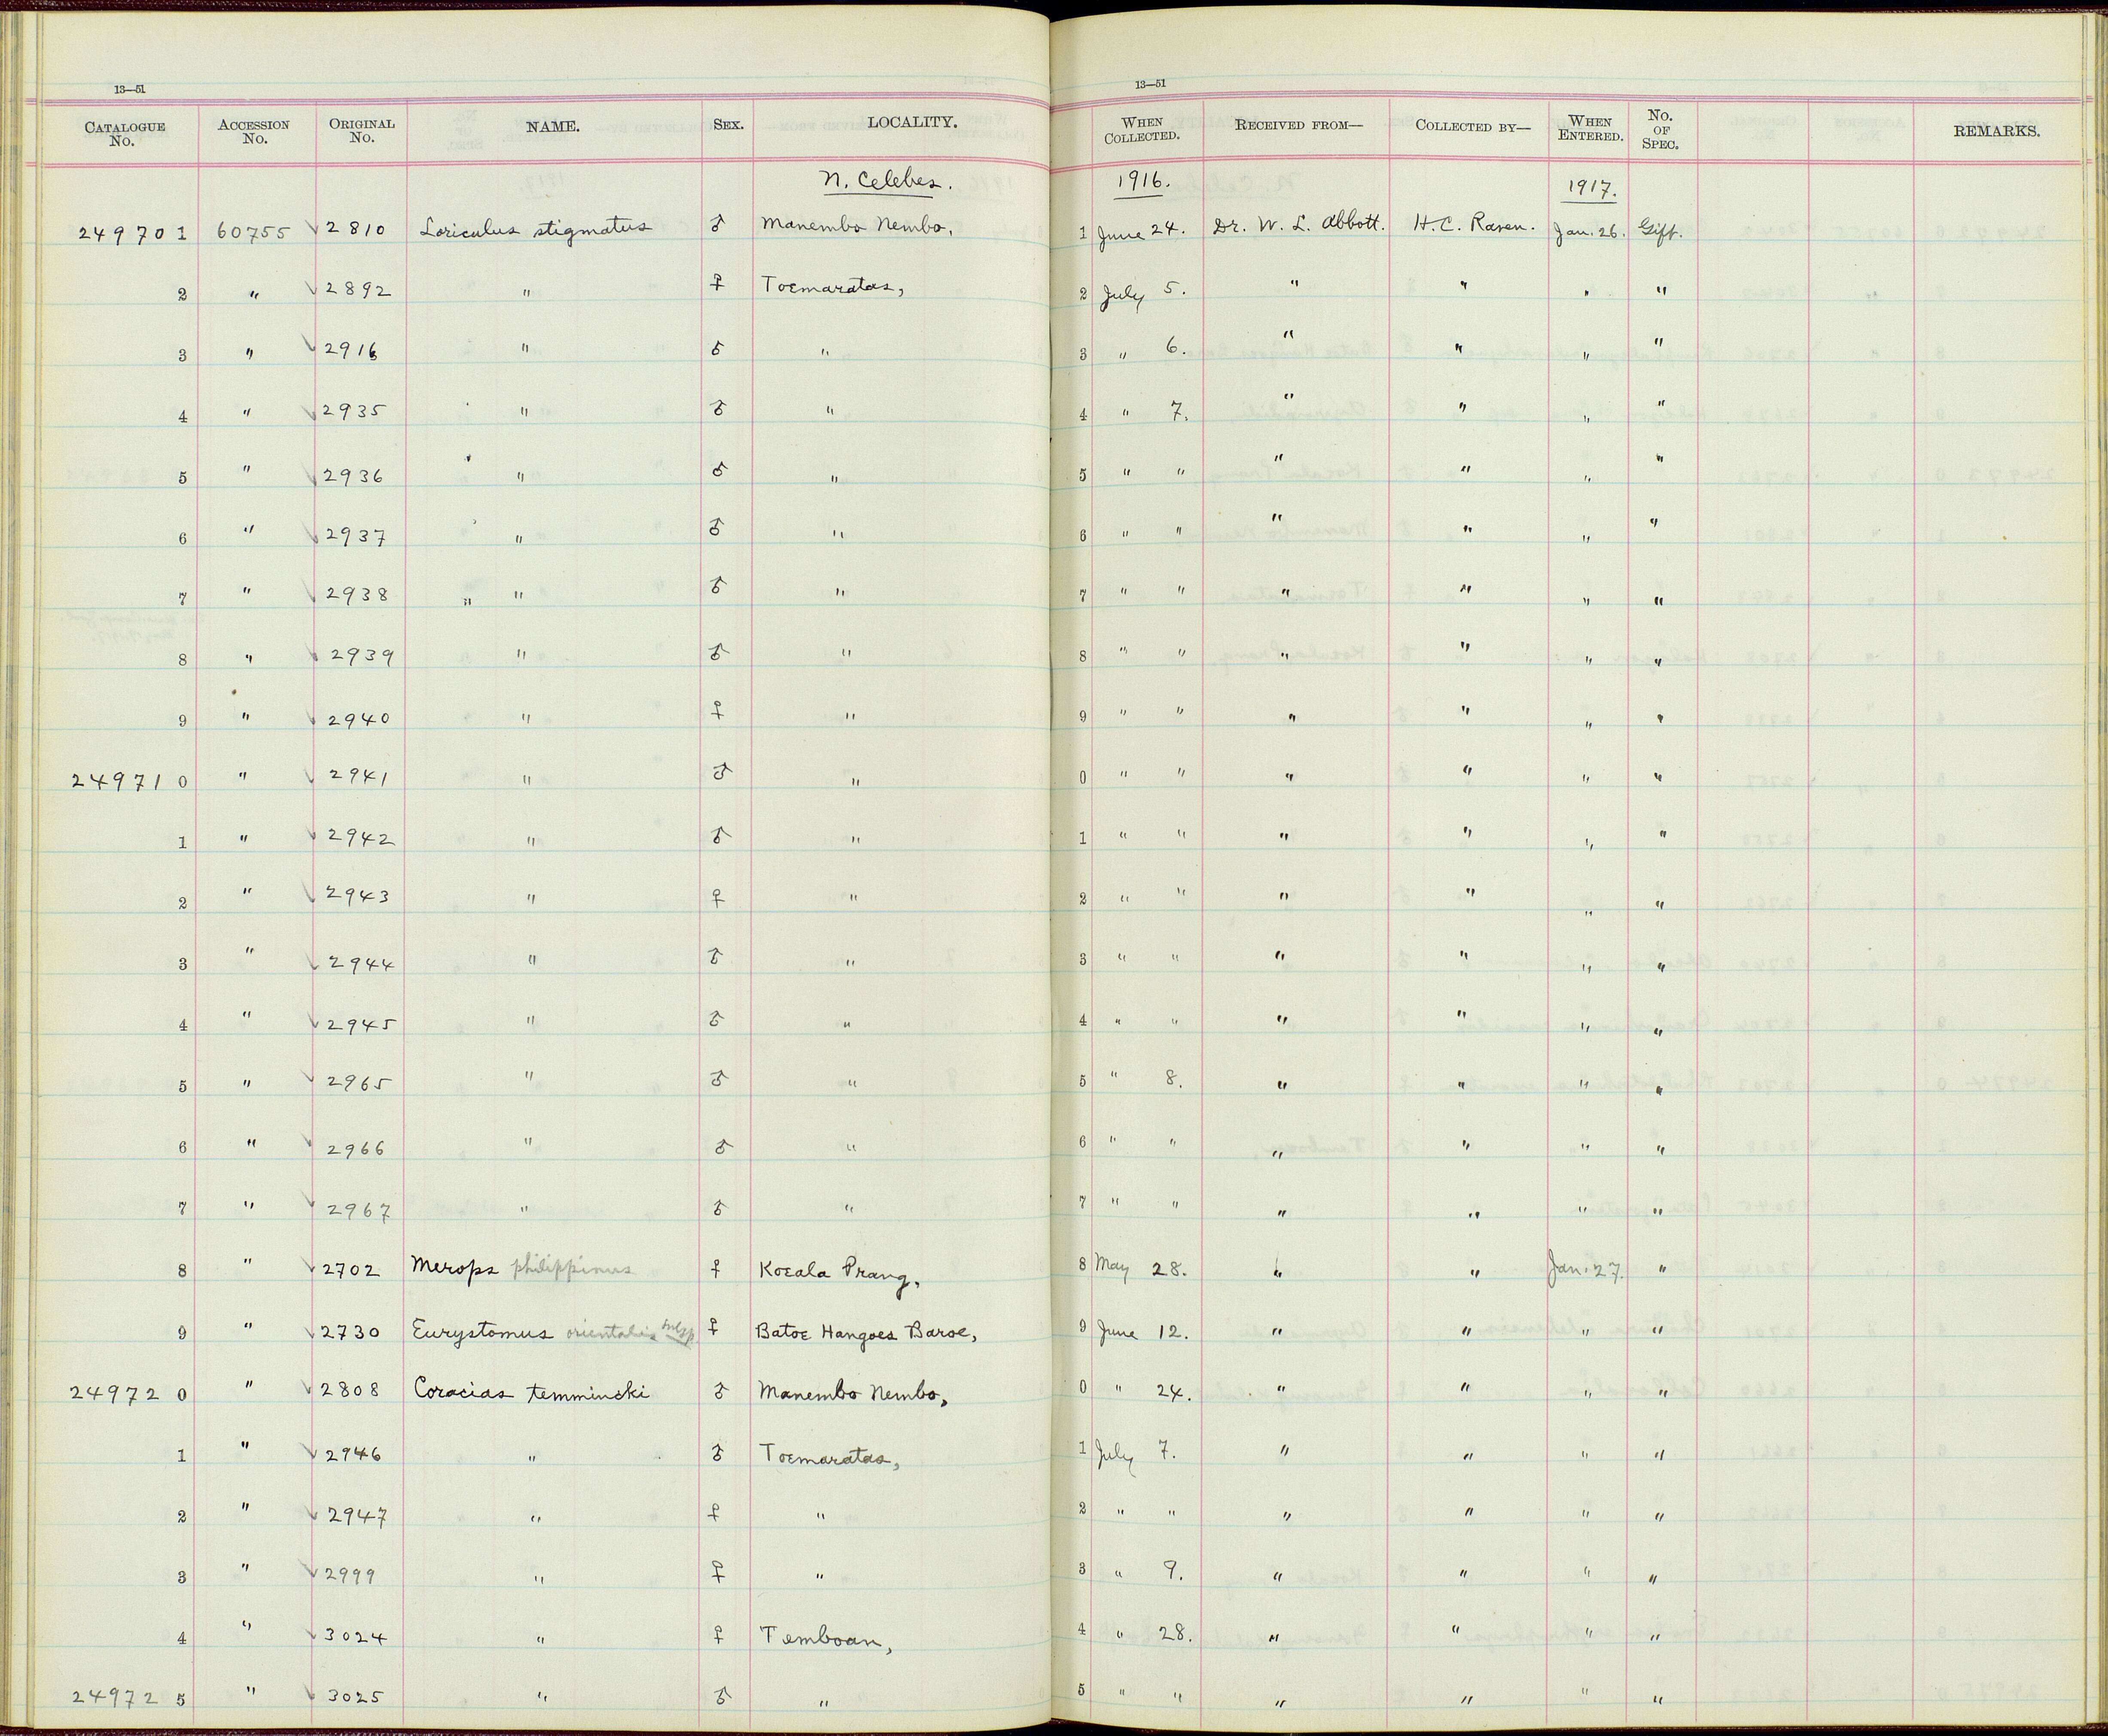 13—51
13—51
CATALOGUE No. ACCESSION No. ORIGINAL No. NAME. SEX. LOCALITY. WHEN COLLECTED. RECEIVED FROM— COLLECTED BY— WHEN ENTERED. No. OF SPEC. REMARKS.
N. Celebes. 1916. 1917.
249701 60755 ✓ 2810 Loriculus stigmatus ♂ Manembo Nembo, 1 June 24. Dr. W. L. Abbott. H.C. Raven. Jan. 26. Gift.
2 " ✓ 2892 " ♀ Toemaratas, 2 July 5. " " " "
3 " ✓ 2916 " ♂ " 3 " 6. " " " "
4 " ✓ 2935 " ♂ " 4 " 7. " " " "
5 " ✓ 2936 " ♂ " 5 " " " " " "
6 " ✓ 2937 " ♂ " 6 " " " " " "
7 " ✓ 2938 " " ♂ " 7 " " " " " "
8 " ✓ 2939 " ♂ " 8 " " " " " "
9 " ✓ 2940 " ♀ " 9 " " " " " "
249710 " ✓ 2941 " ♂ " 0 " " " " " "
1 " ✓ 2942 " ♂ " 1 " " " " " "
2 " ✓ 2943 " ♀ " 2 " " " " " "
3 " ✓ 2944 " ♂ " 3 " " " " " "
4 " ✓ 2945 " ♂ " 4 " " " " " "
5 " ✓ 2965 " ♂ " 5 " 8. " " " "
6 " ✓ 2966 " ♂ " 6 " " " " " "
7 " ✓ 2967 " ♂ " 7 " " " " " "
8 " ✓ 2702 Merops philippinus ♀ Koeala Prang, 8 May 28. " " Jan. 27. "
9 " ✓ 2730 Eurystomus orientalis subsp. ♀ Batoe Hangoes Baroe, 9 June 12. " " " "
249720 " ✓ 2808 Coracias temmincki ♂ Manembo Nembo, 0 " 24. " " " "
1 " ✓ 2946 " ♂ Toemaratas, 1 July 7. " " " "
2 " ✓ 2947 " ♀ " 2 " " " " " "
3 " ✓ 2999 " ♀ " 3 " 9. " " " "
4 " ✓ 3024 " ♀ Temboan, 4 " 28. " " " "
249725 " ✓ 3025 " ♂ " 5 " " " " " "